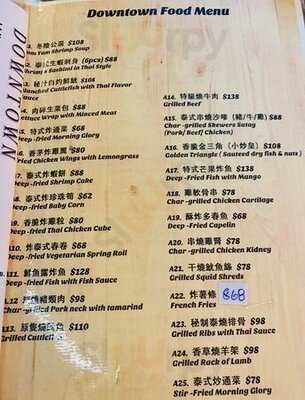 Downtown Food Menu
DOWNTOWN
冬陰公湯 $108
Tom Yum Shrimp Soup
泰式生蝦刺身 (6pcs) $88
Shrimp's Sashimi in Thai Style
秘汁白灼鮮魷 $108
Blanched Cuttlefish with Thai Flavor
Sauce
肉碎生菜包 $88
Lettuce Wrap with Minced Meat
特式炸通菜 $68
Deep-fried Morning Glory
香茅炸雞翼 $80
Fried Chicken Wings with Lemongrass
A7. 泰式炸蝦餅 $88
Deep-fried Shrimp Cake
A8. 泰式炸珍珠筍 $62
Deep-fried Baby Corn
A9. 香脆炸雞粒 $80
Deep-fried Thai Chicken Cube
A10. 炸泰式春卷 $68
Deep-fried Vegetarian Spring Roll
A11. 鮮魚露炸魚 $128
Deep-fried Fish with Fish Sauce
A12. 豬頸肉 $98
Char-grilled Pork neck with tamarind
A13. 原隻燒魷魚 $110
Grilled Cuttlefish
A14. 特級燒牛肉 $138
Grilled Beef
A15. 泰式串燒沙嗲 (豬/牛/雞) $88
Char-grilled Skewers Satay
(Pork/Beef/Chicken)
A16. 香脆金三角 (小炒皇) $108
Golden Triangle (Sauteed dry fish & nuts)
A17. 特式芒果炸魚 $138
Deep-fried Fish with Mango
A18. 雞軟骨串 $78
Char-grilled Chicken Cartilage
A19. 酥炸多春魚 $68
Deep-fried Capelin
A20. 串燒雞腎 $78
Char-grilled Chicken Kidney
A21. 干燒魷魚絲 $78
Grilled Squid Shreds
A22. 炸薯條 $68
French Fries
A23. 秘制泰燒排骨 $98
Grilled Ribs with Thai Sauce
A24. 香草燒羊架 $98
Grilled Rack of Lamb
A25. 泰式炒通菜 $78
Stir-Fried Morning Glory